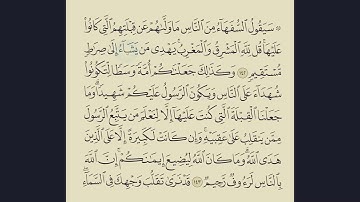 ۞ سَيَقُولُ ٱلسُّفَهَآءُ مِنَ ٱلنَّاسِ مَا وَلَّىٰهُمْ عَن قِبْلَتِهِمُ ٱلَّتِى كَانُوا۟
عَلَيْهَا ۚ قُل لِّلَّهِ ٱلْمَشْرِقُ وَٱلْمَغْرِبُ ۚ يَهْدِى مَن يَشَآءُ إِلَىٰ صِرَٰطٍ
مُّسْتَقِيمٍ ١٤٢ وَكَذَٰلِكَ جَعَلْنَٰكُمْ أُمَّةً وَسَطًا لِّتَكُونُوا۟
شُهَدَآءَ عَلَى ٱلنَّاسِ وَيَكُونَ ٱلرَّسُولُ عَلَيْكُمْ شَهِيدًا ۗ وَمَا
جَعَلْنَا ٱلْقِبْلَةَ ٱلَّتِى كُنتَ عَلَيْهَآ إِلَّا لِنَعْلَمَ مَن يَتَّبِعُ ٱلرَّسُولَ
مِمَّن يَنقَلِبُ عَلَىٰ عَقِبَيْهِ ۚ وَإِن كَانَتْ لَكَبِيرَةً إِلَّا عَلَى ٱلَّذِينَ
هَدَى ٱللَّهُ ۗ وَمَا كَانَ ٱللَّهُ لِيُضِيعَ إِيمَٰنَكُمْ ۚ إِنَّ ٱللَّهَ
بِٱلنَّاسِ لَرَءُوفٌ رَّحِيمٌ ١٤٣ قَدْ نَرَىٰ تَقَلُّبَ وَجْهِكَ فِى ٱلسَّمَآءِ ۖ